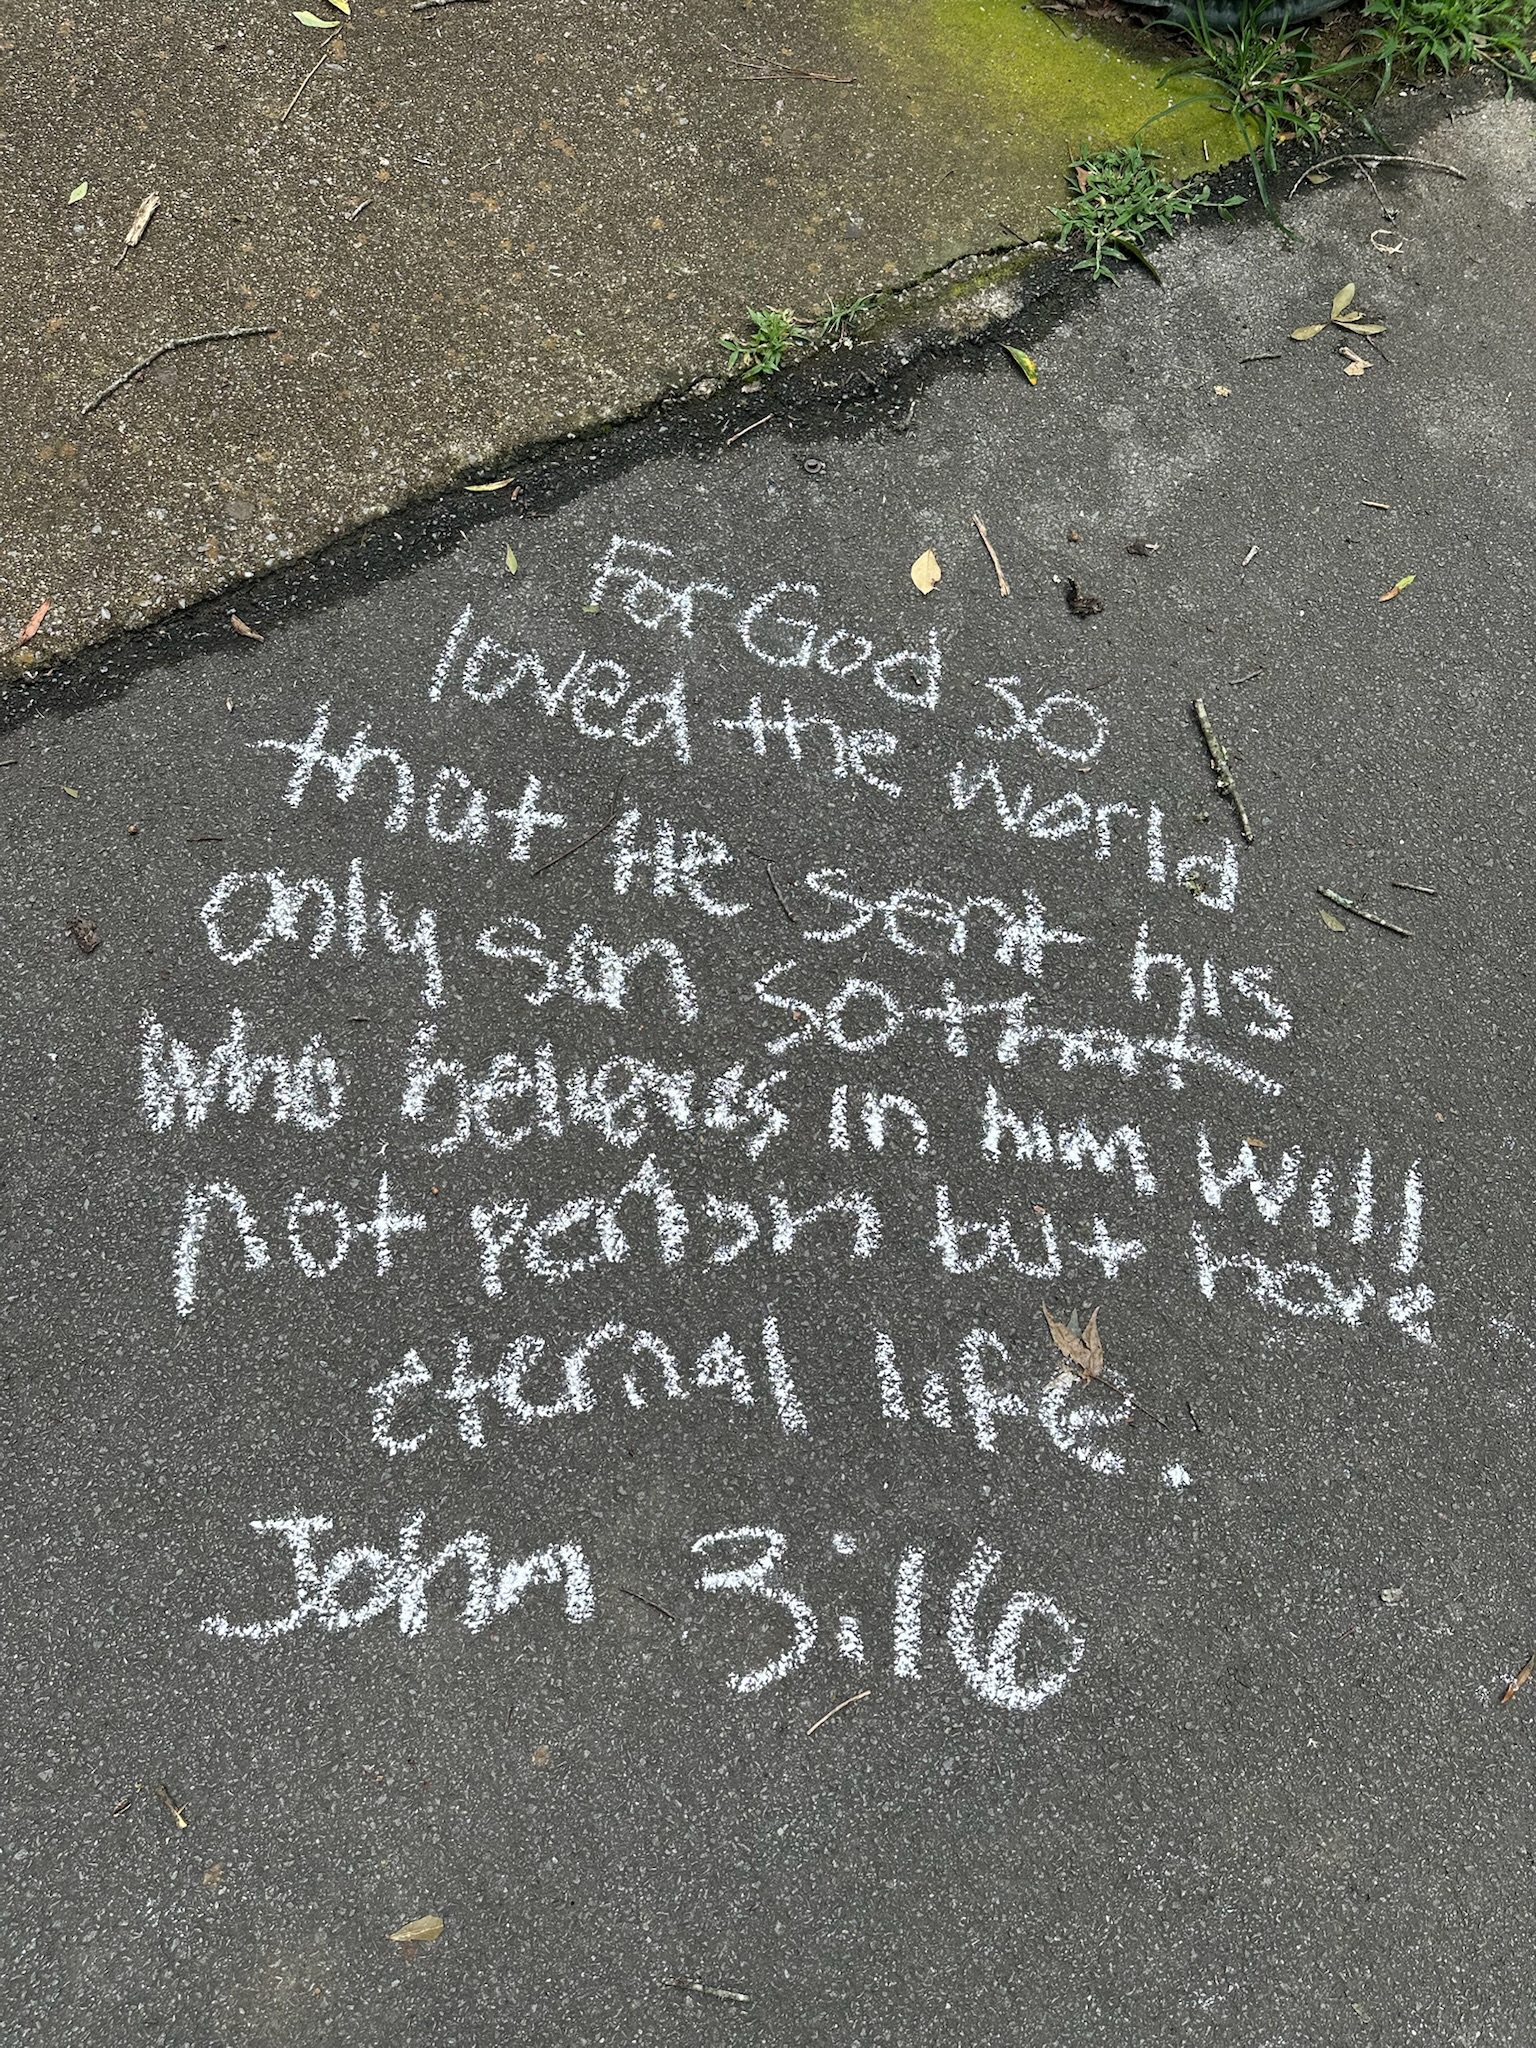 For God so
loved the world
that He sent his
only son so that
who believes in him will
not perish but have
eternal life.
John 3:16